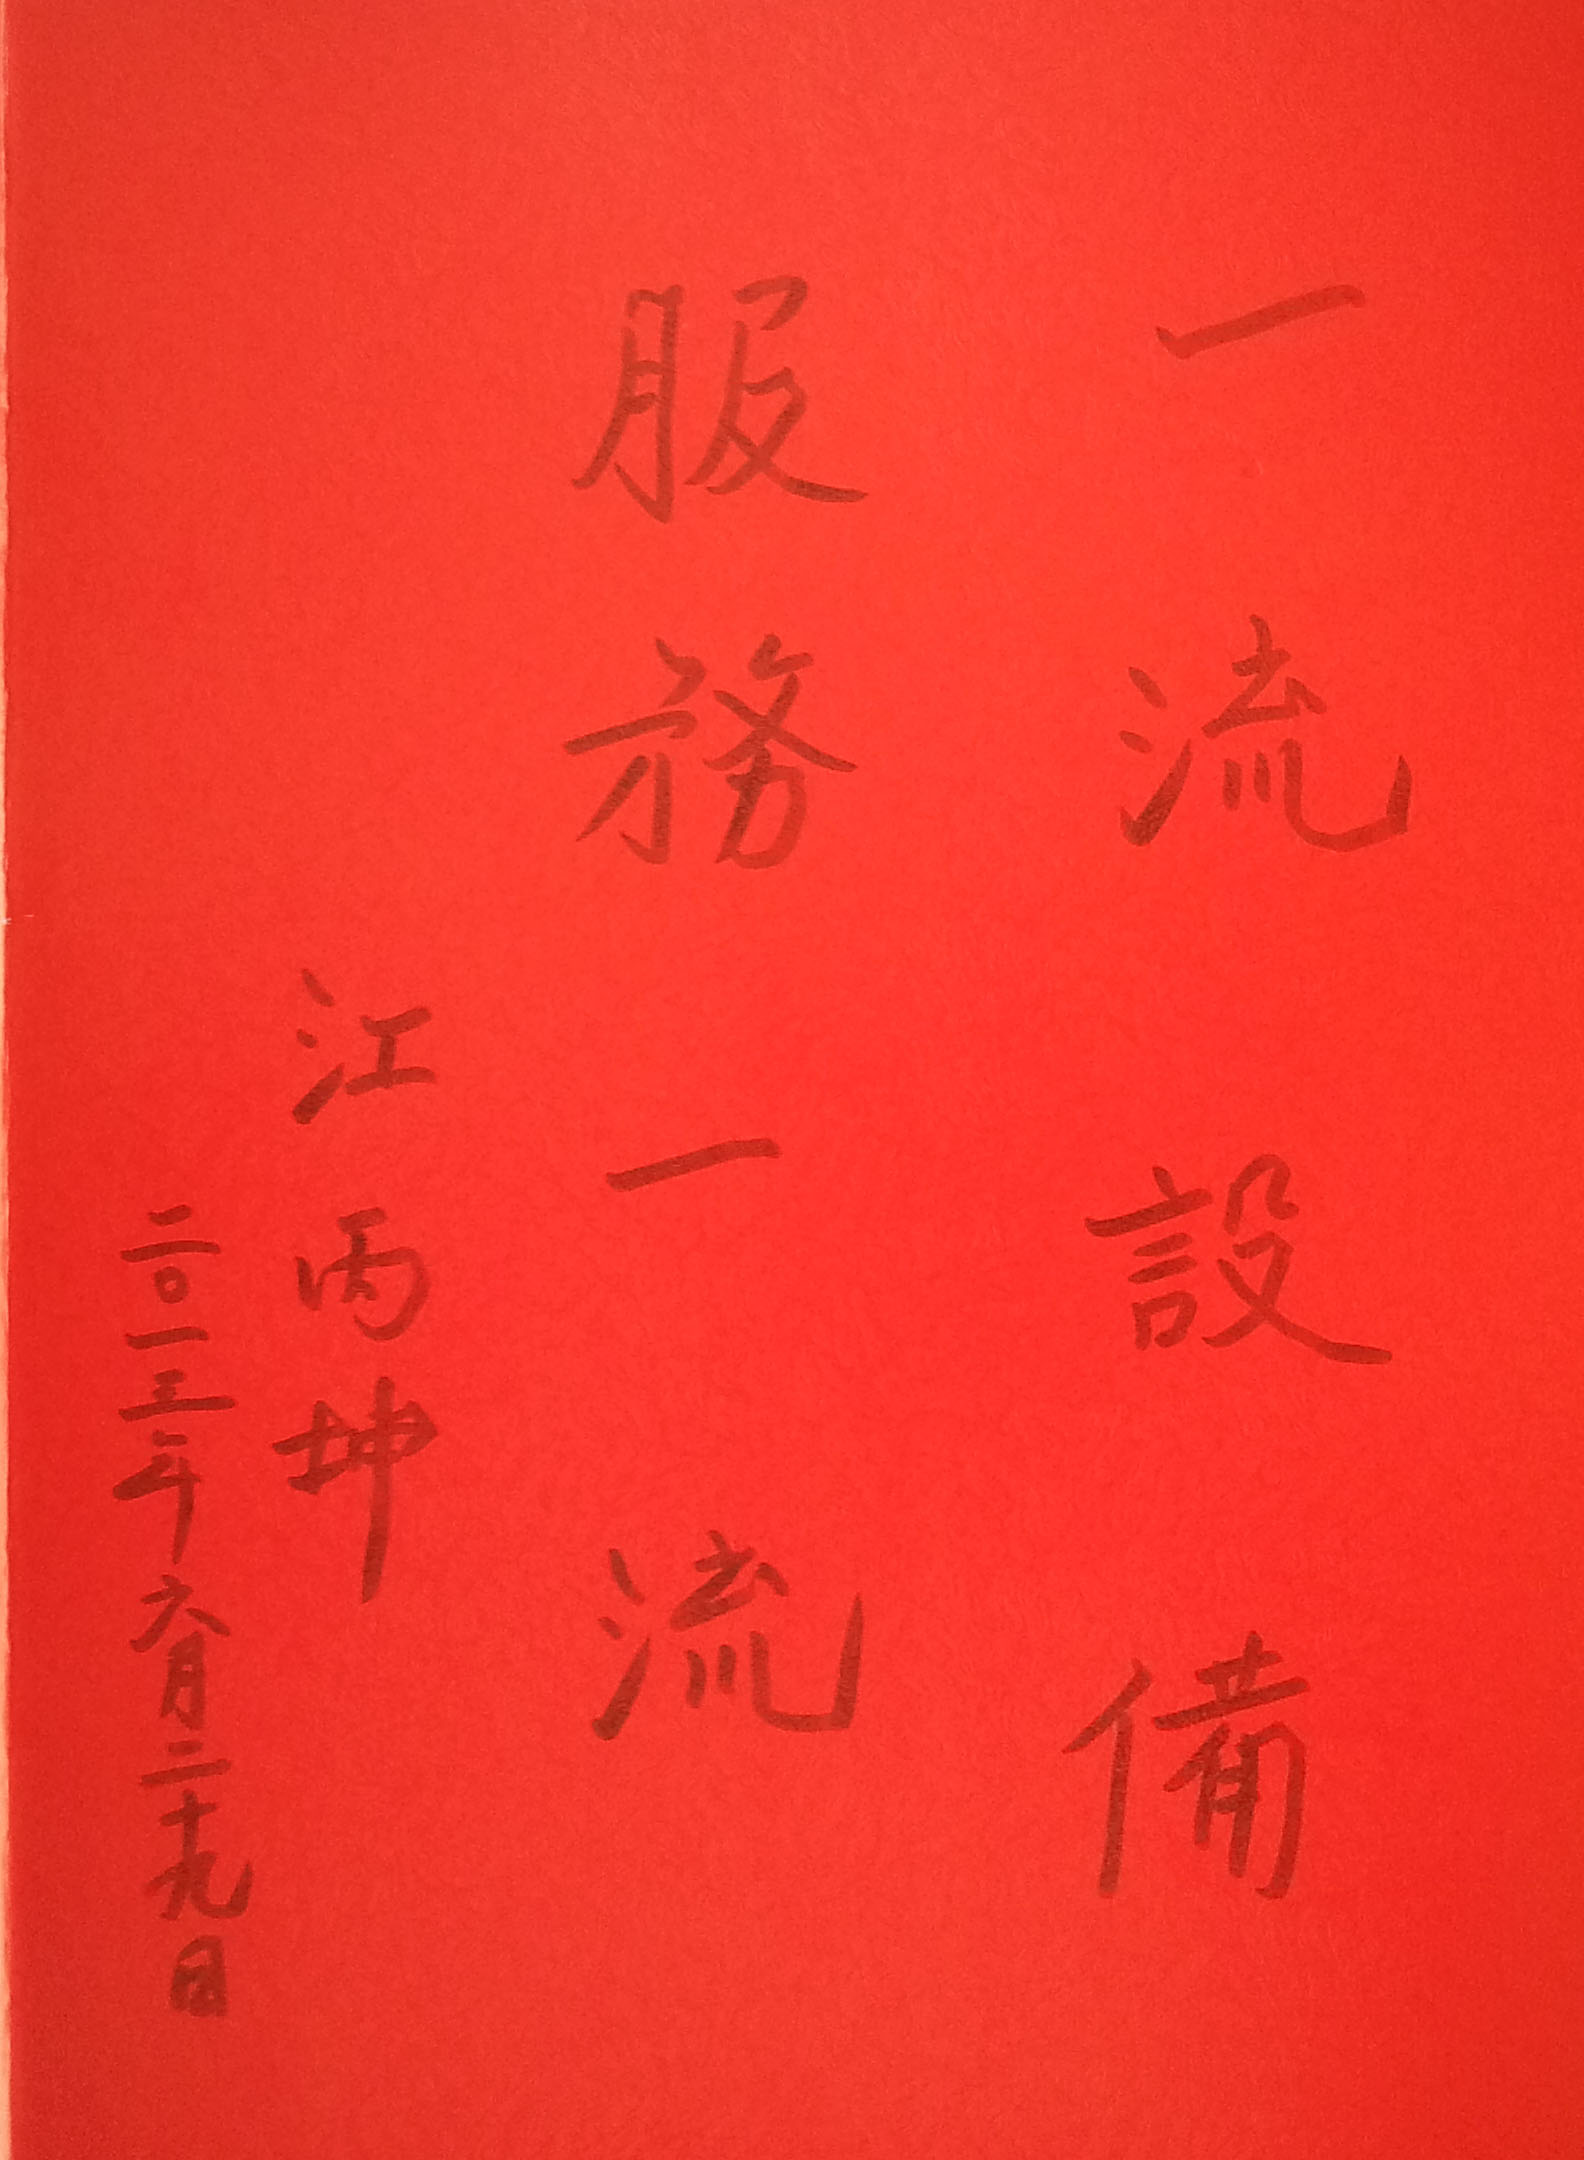 一流設備
服務一流
江丙坤
二〇一三年六月二十九日